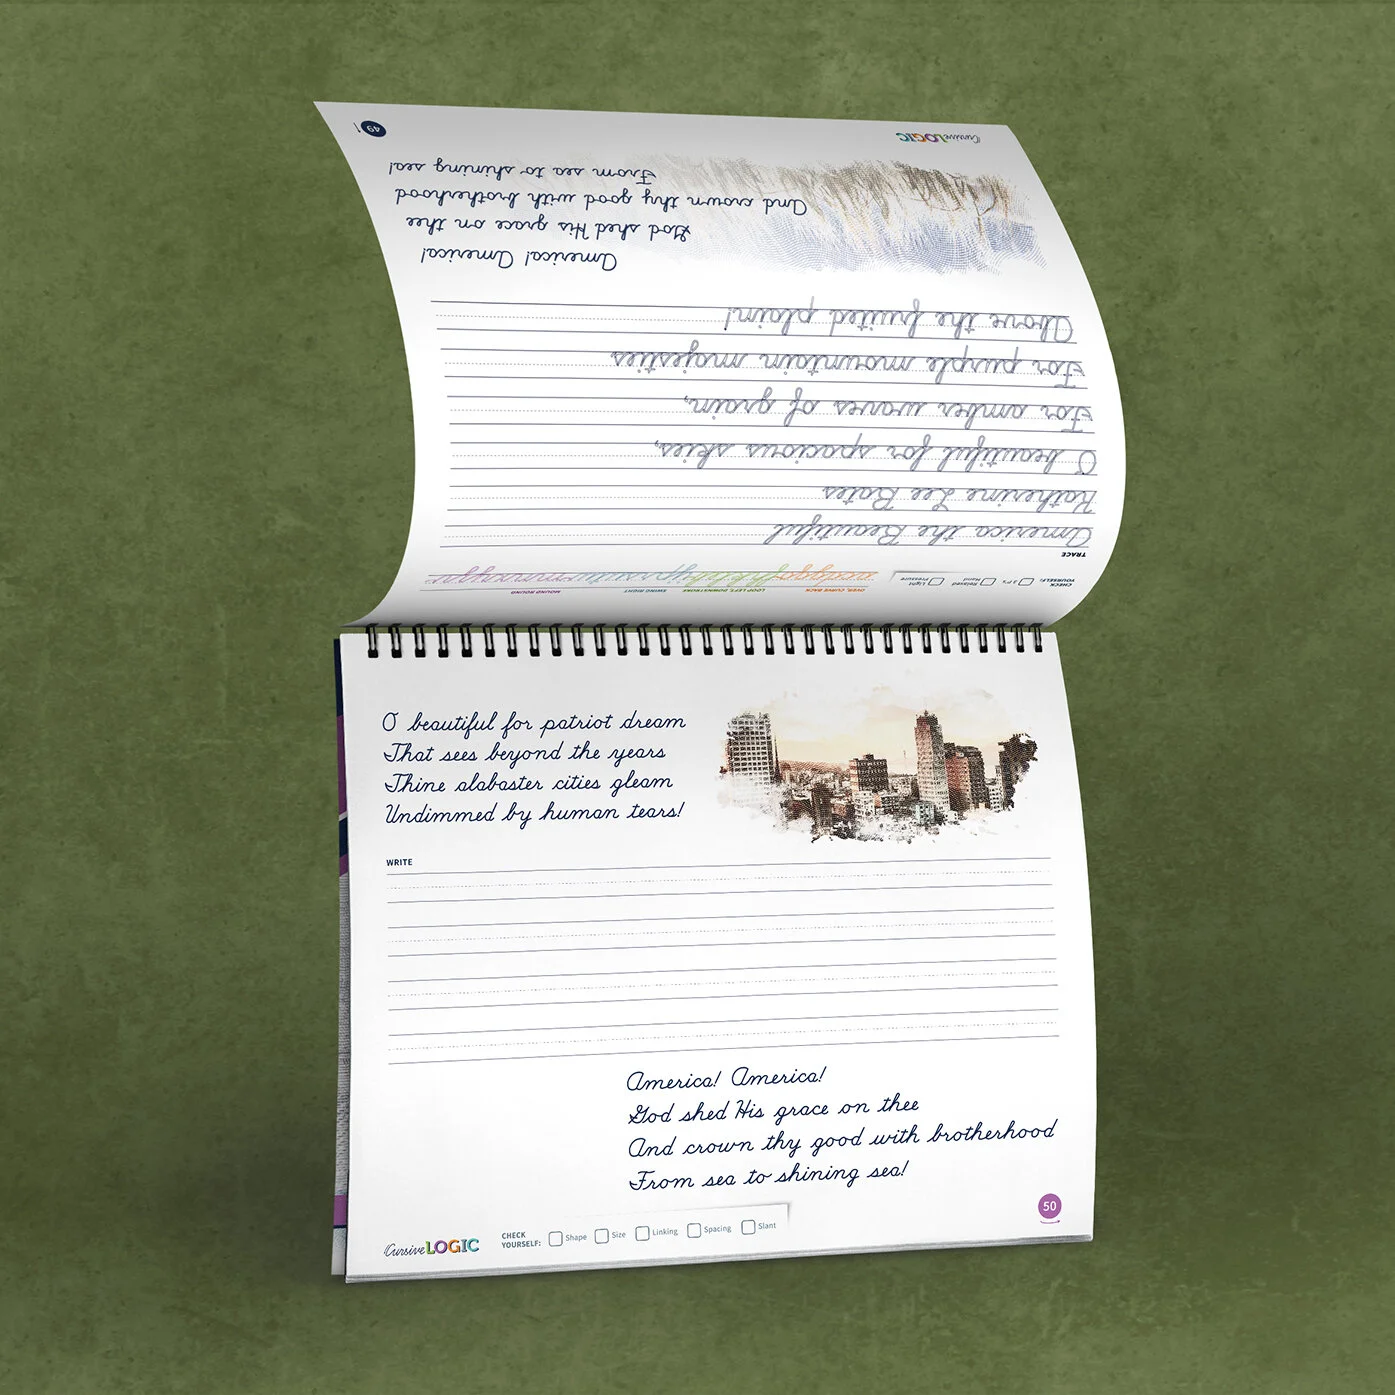 CHECK YOURSELF:
3 P's
Relaxed Hand
Light Pressure
OVER, CURVE BACK
LOOP LEFT, DOWNSTROKE
SWING RIGHT
MOUND ROUND
TRACE
America the Beautiful
Katherine Lee Bates
O beautiful for spacious skies,
For amber waves of grain,
For purple mountain majesties
Above the fruited plain!
America! America!
God shed His grace on thee
And crown thy good with brotherhood
From sea to shining sea!
CursiveLOGIC
49
O beautiful for patriot dream
That sees beyond the years
Thine alabaster cities gleam
Undimmed by human tears!
WRITE
America! America!
God shed His grace on thee
And crown thy good with brotherhood
From sea to shining sea!
50
CursiveLOGIC
CHECK YOURSELF:
Shape
Size
Linking
Spacing
Slant